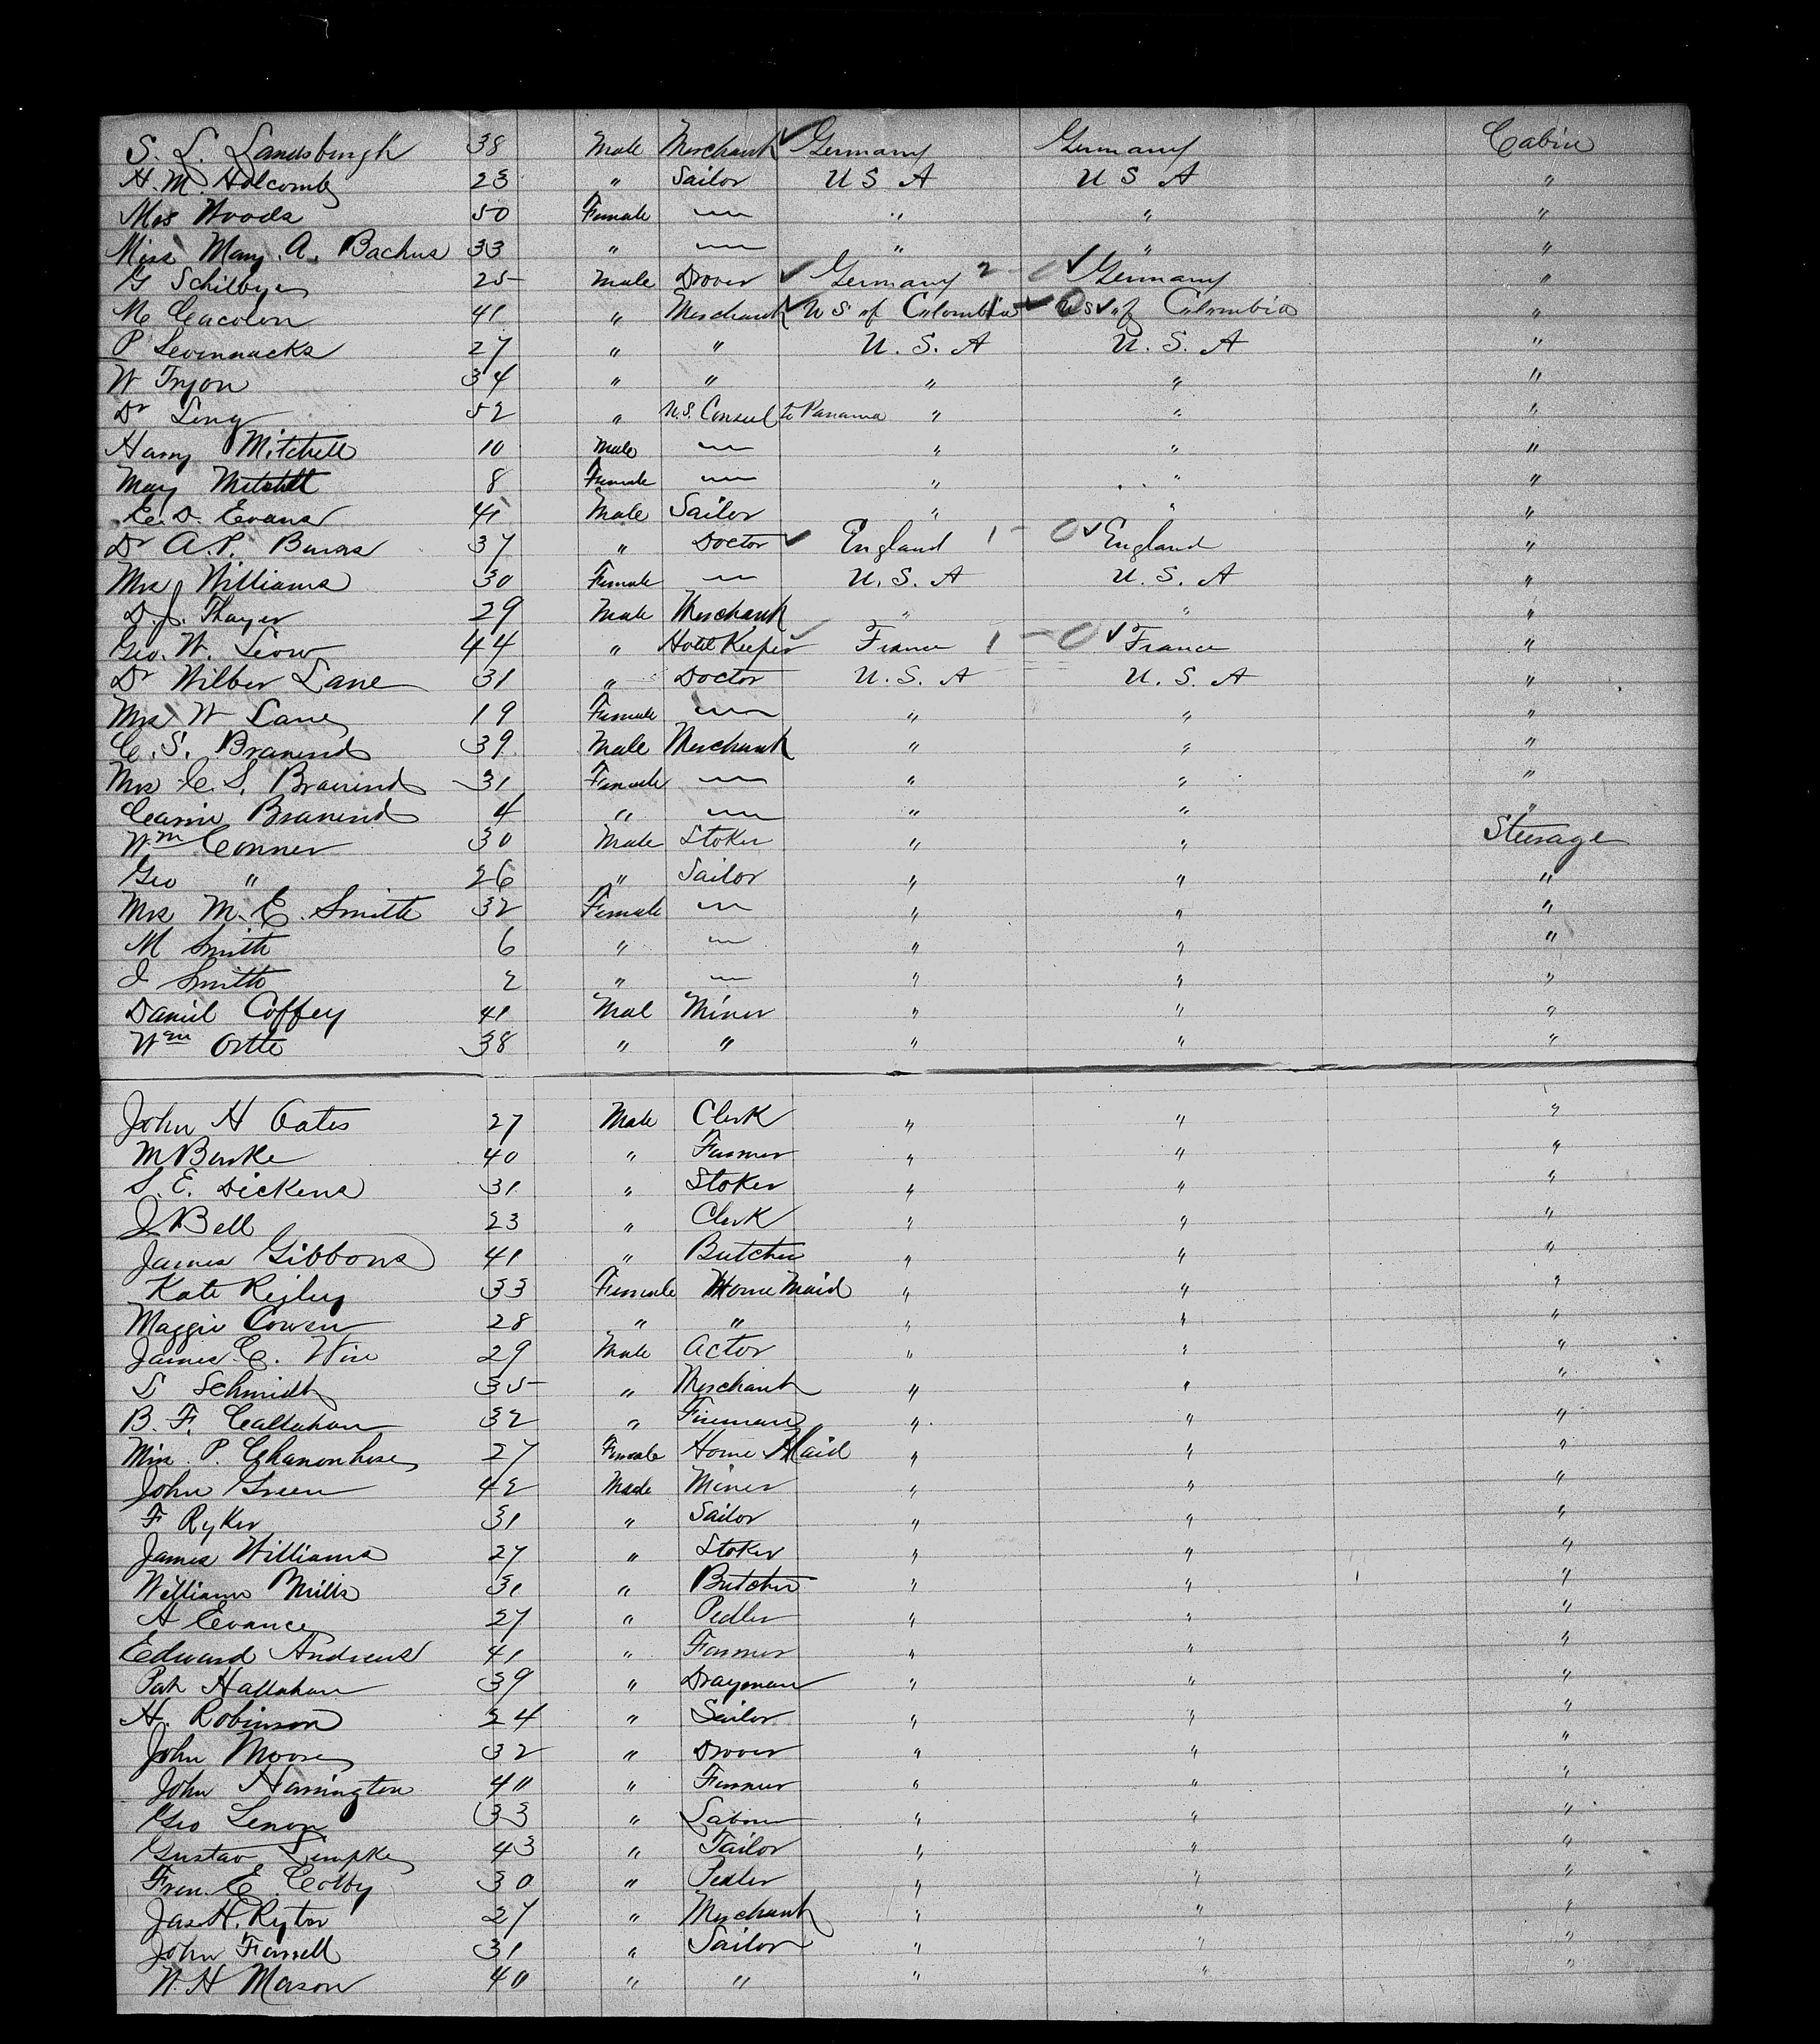 S. L. Landsburgh 38 Male Merchant ✓ Germany Germany Cabin
H. M. Holcomb 23 " Sailor U S A U S A "
Mrs Woods 50 Female — " " "
Miss Mary. A. Bachus 33 " — " " "
G Schilbye 25 Male Drover ✓ Germany 2 - 0 ✓ Germany "
M 41 " Merchant ✓ U S of Colombia 1 - 0 U S ✓ of Colombia "
P Levinnacks 27 " " U. S. A U. S. A "
W Tryon 34 " " " " "
Dr Long 52 " U.S. Consul to Panama " " "
Harry Mitchell 10 Male — " " "
May Mitchell 8 Female — " " "
E. D. Evans 41 Male Sailor " " "
Dr A. P. Burns 37 " Doctor ✓ England 1 - 0 ✓ England "
Mrs Williams 30 Female — U. S. A U. S. A "
D. J. Thayer 29 Male Merchant " " "
Geo. W. 44 " Hotel Keeper ✓ France 1 - 0 ✓ France "
Dr Wilber Lane 31 " Doctor U. S. A U. S. A "
Mrs W Lane 19 Female — " " "
C. S. Branend 39 Male Merchant " " "
Mrs C. S. Branend 31 Female — " " "
Carrie Branend 4 " — " " "
Wm Conner 30 Male Stoker " " Steerage
Geo " 26 " Sailor " " "
Mrs M. E. Smith 32 Female — " " "
M Smith 6 " — " " "
I Smith 2 " — " " "
Daniel Coffey 41 Mal Miner " " "
Wm Ortte 38 " " " " "
John H Oates 27 Male Clerk " " "
M Burke 40 " Farmer " " "
S. E. Dickens 31 " Stoker " " "
J Bell 23 " Clerk " " "
James Gibbons 41 " Butcher " " "
Kate Regley 33 Female Home Maid " " "
Maggie Cowen 28 " " " " "
James C. Wire 29 Male Actor " " "
S Schmidt 35 " Merchant " " "
B. F. Callahan 32 " Fireman " " "
Miss P. 27 Female Home Maid " " "
John Green 42 Male Miner " " "
F Ryker 31 " Sailor " " "
James Williams 27 " Stoker " " "
William Mills 31 " Butcher " " "
A Evance 27 " Pedler " " "
Edward Andrews 41 " Farmer " " "
Pat Hallahan 39 " Drayman " " "
H. Robinson 24 " Sailor " " "
John Moore 32 " Drover " " "
John Harrington 40 " Farmer " " "
Geo Lenon 33 " Labour " " "
Gustav Lempke 43 " Tailor " " "
Fren. E. Colby 30 " Pedler " " "
Jas H. Rytor 27 " Merchant " " "
John Farrell 31 " Sailor " " "
W. H Mason 40 " " " " "